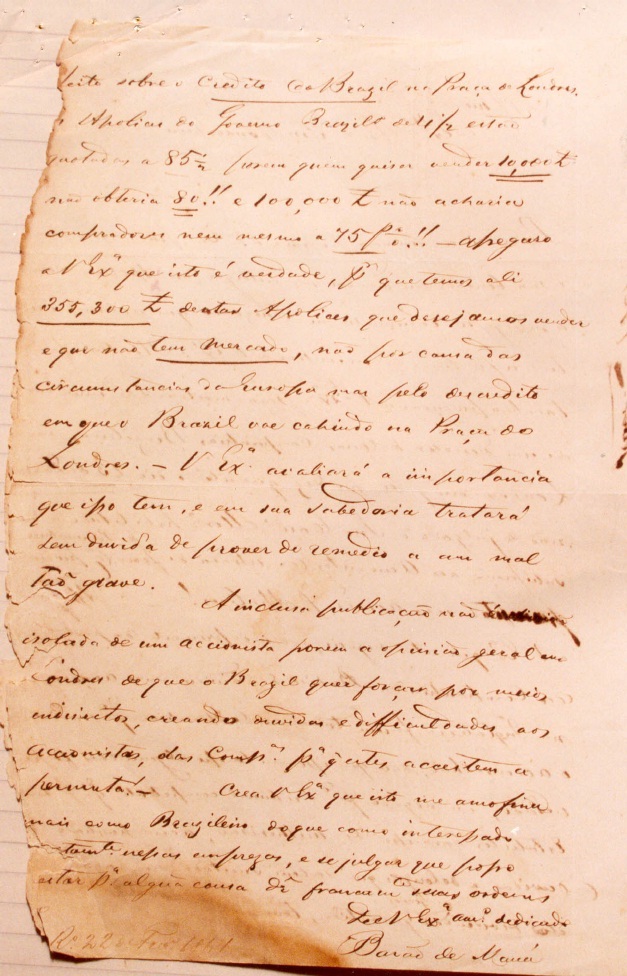 sobre o Credito do Brazil na Praça de Londres.
Apolices do Governo Brazilº de 4 1/2 estão
quotadas a 85 1/2 porem quem quiser vender 10,000 £
não obteria 80!! e 100,000 £ não acharia
compradores nem mesmo a 75 !! — asseguro
a V Exª que isto é verdade, pª que temos ali
355,300 £ destas Apolices que desejamos vender
e que não tem mercado, não por causa das
circumstancias da Europa mas pelo descredito
em que o Brazil vae cahindo na Praça de
Londres. — V Exª avaliará a importancia
que isso tem, e em sua sabedoria tratará
sem duvida de prover de remedio a um mal
taõ grave.
A inclusa publicação não é
isolada de um accionista porem a opinião geral em
Londres de que o Brazil quer forçar por meios
indirectos, creando duvidas e difficuldades aos
accionistas, das Compªˢ pª q' estes acceitem a
permuta! — Crea V Exª que isto me amofina
mais como Brazileiro do que como interessado
nessas emprezas, e se julgar que posso
estar pª algúa cousa dê francamᵗᵉ suas ordens
De V Exª amº dedicado
Barão de Mauá